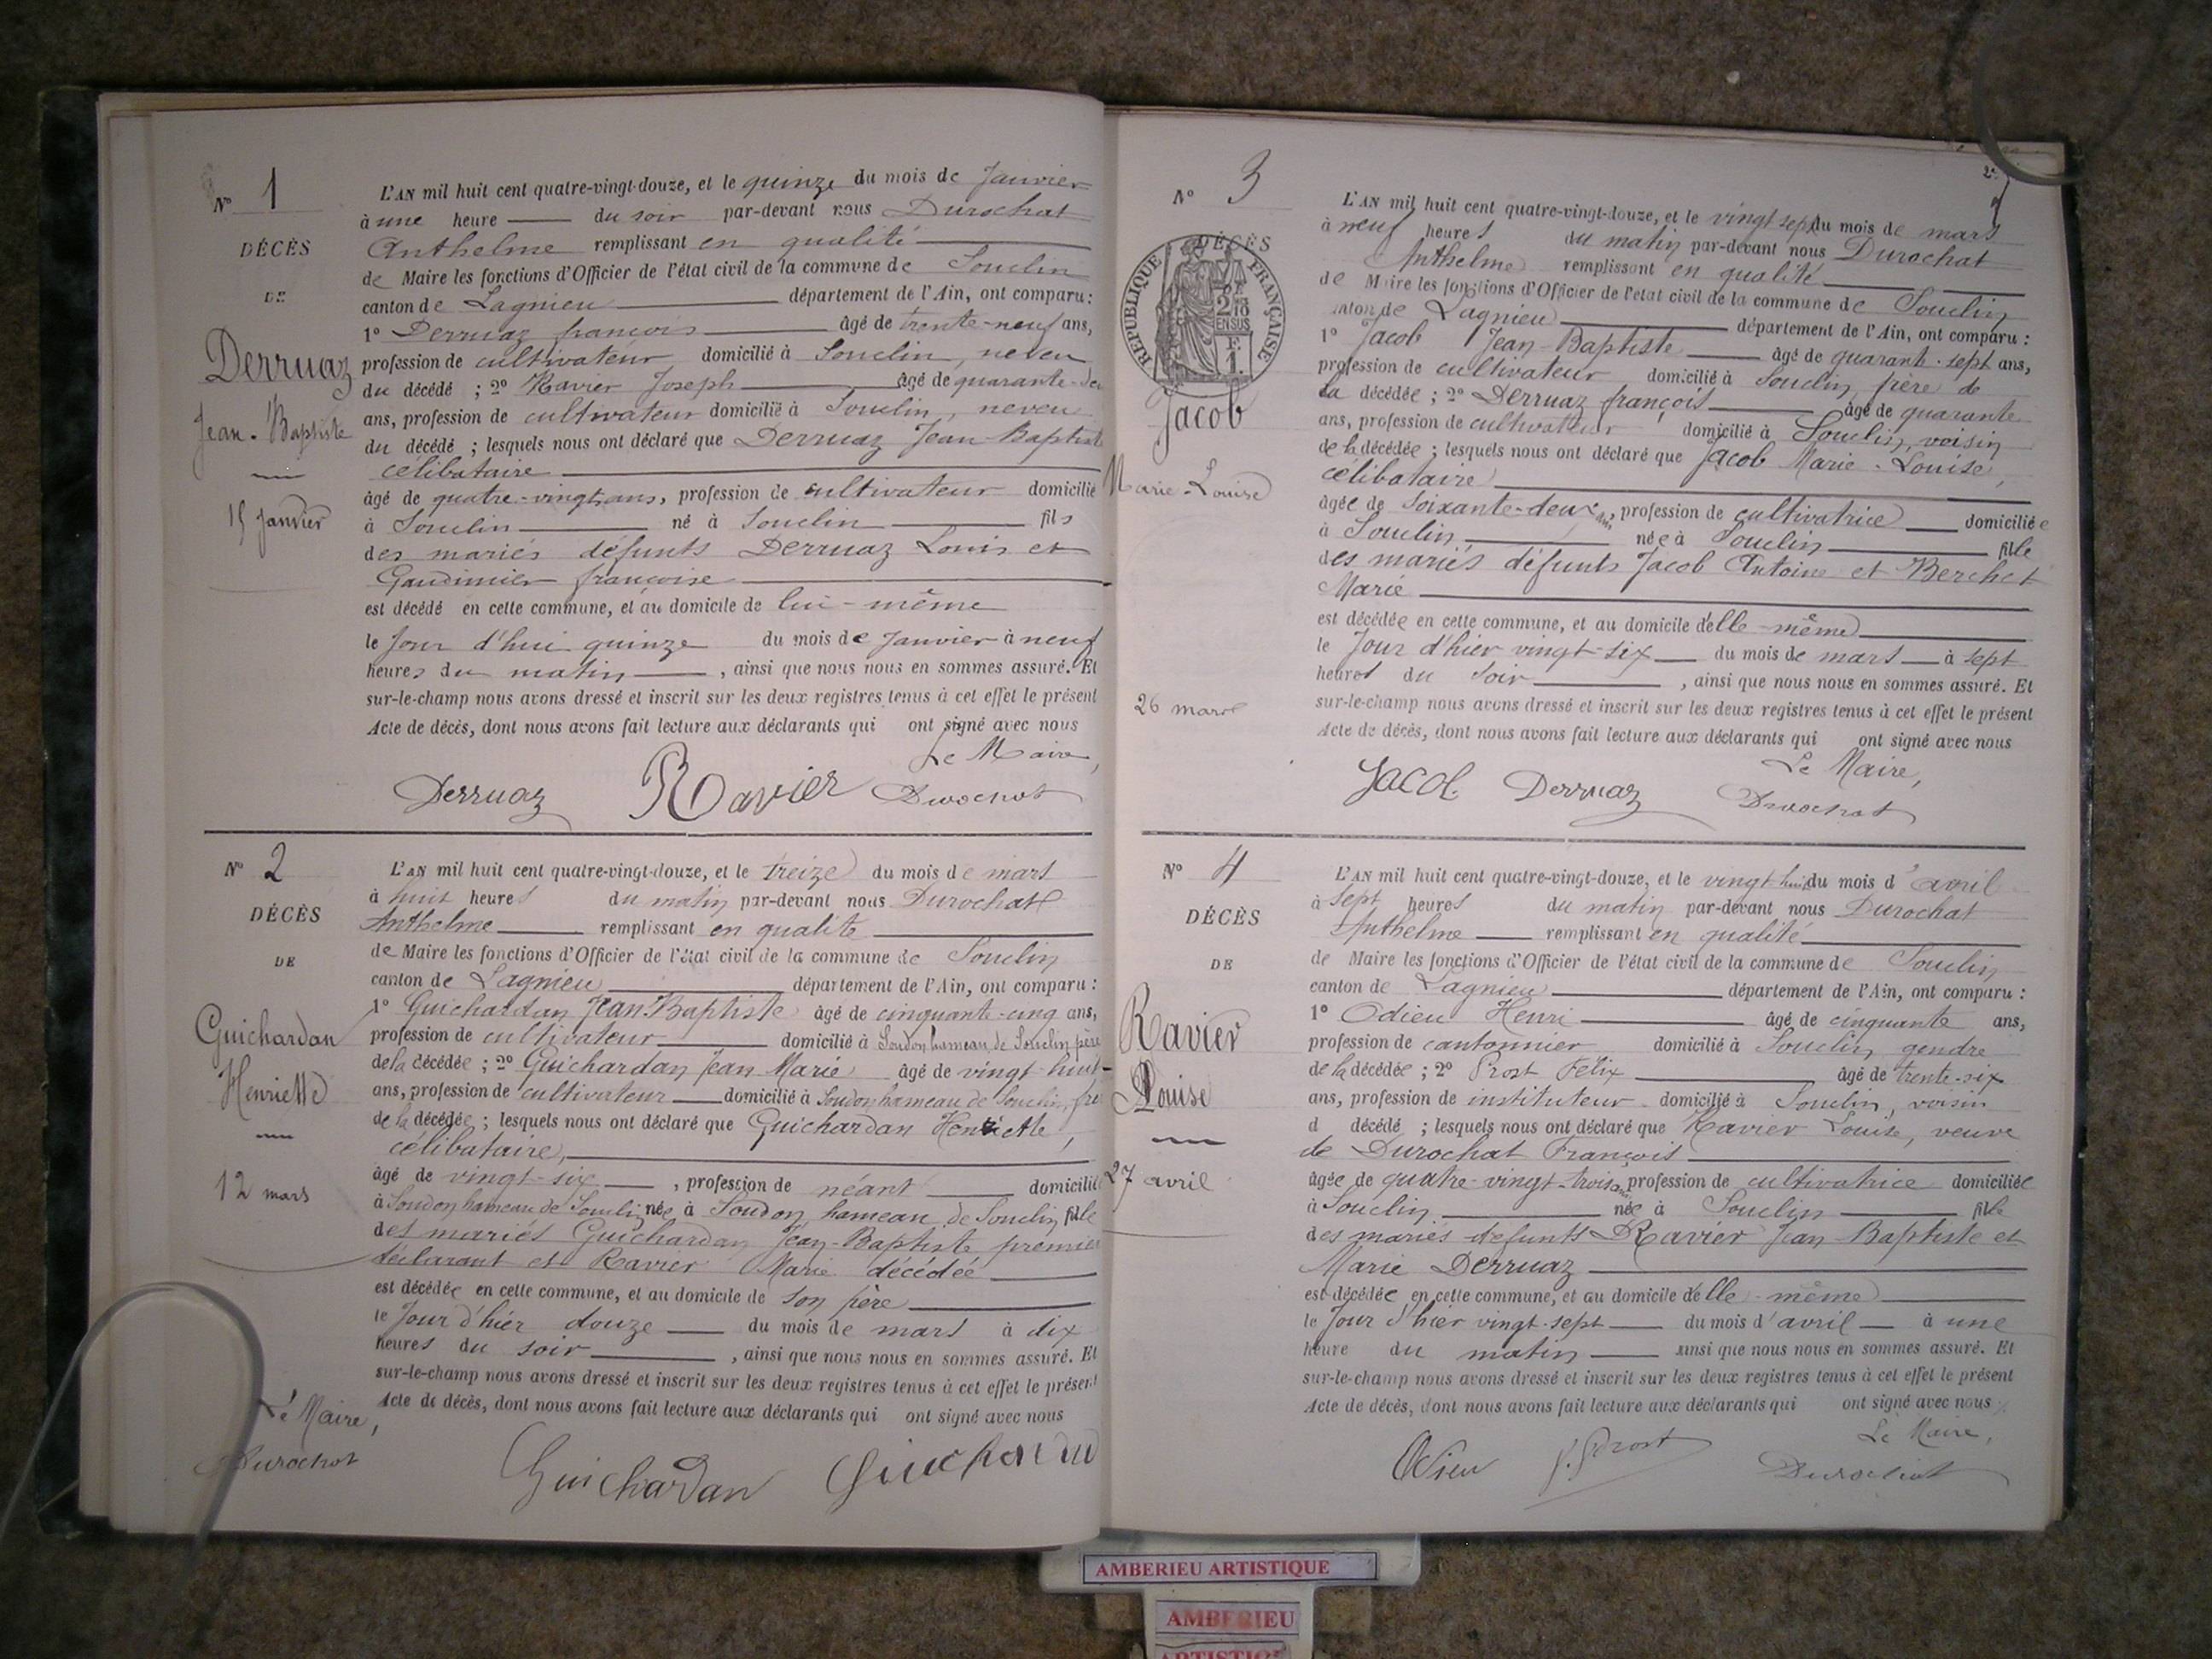 Nº 1
DÉCÈS
DE
Derruaz
Jean-Baptiste
15 Janvier
L'AN mil huit cent quatre-vingt-douze, et le quinze du mois de Janvier
à une heure du soir par-devant nous Durochat
Anthelme remplissant en qualité
de Maire les fonctions d'Officier de l'état civil de la commune de Souclin
canton de Lagnieu département de l'Ain, ont comparu :
1º Derruaz françois âgé de trente-neuf ans,
profession de cultivateur domicilié à Souclin, neveu
du décédé ; 2º Ravier Joseph âgé de quarante-
ans, profession de cultivateur domicilié à Souclin, neveu
du décédé ; lesquels nous ont déclaré que Derruaz Jean-Baptiste
célibataire
âgé de quatre-vingt ans, profession de cultivateur domicilié
à Souclin né à Souclin fils
des mariés défunts Derruaz Louis et
Gaudinier françoise
est décédé en cette commune, et au domicile de lui-même
le Jour d'hui quinze du mois de Janvier à neuf
heures du matin, ainsi que nous nous en sommes assuré. Et
sur-le-champ nous avons dressé et inscrit sur les deux registres tenus à cet effet le présent
Acte de décès, dont nous avons fait lecture aux déclarants qui ont signé avec nous
Le Maire,
Derruaz Ravier Durochat
Nº 2
DÉCÈS
DE
Guichardan
Henriette
12 mars
L'AN mil huit cent quatre-vingt-douze, et le treize du mois de mars
à huit heures du matin par-devant nous Durochat
Anthelme remplissant en qualité
de Maire les fonctions d'Officier de l'état civil de la commune de Souclin
canton de Lagnieu département de l'Ain, ont comparu :
1º Guichardan Jean-Baptiste âgé de cinquante-cinq ans,
profession de cultivateur domicilié à Soudon hameau de Souclin père
de la décédée ; 2º Guichardan Jean Marie âgé de vingt-huit-
ans, profession de cultivateur domicilié à Soudon hameau de Souclin, frè
de la décédée ; lesquels nous ont déclaré que Guichardan Henriette,
célibataire,
âgé de vingt-six, profession de néant domicilié
à Soudon hameau de Souclin née à Soudon hameau de Souclin fille
des mariés Guichardan Jean-Baptiste premier
déclarant et Ravier Marie décédée
est décédée en cette commune, et au domicile de son père
le Jour d'hier douze du mois de mars à dix
heures du soir, ainsi que nous nous en sommes assuré. Et
sur-le-champ nous avons dressé et inscrit sur les deux registres tenus à cet effet le présent
Acte de décès, dont nous avons fait lecture aux déclarants qui ont signé avec nous
Le Maire,
Durochat
Guichardan Guichardan
2e
Nº 3
DÉCÈS
RÉPUBLIQUE FRANÇAISE
Jacob
Marie-Louise
26 mars
L'AN mil huit cent quatre-vingt-douze, et le vingt sept du mois de mars
à neuf heures du matin par-devant nous Durochat
Anthelme remplissant en qualité
de Maire les fonctions d'Officier de l'état civil de la commune de Souclin
canton de Lagnieu département de l'Ain, ont comparu :
1º Jacob Jean-Baptiste âgé de quarant-sept ans,
profession de cultivateur domicilié à Souclin, frère de
la décédée ; 2º Derruaz françois âgé de quarante
ans, profession de cultivateur domicilié à Souclin, voisin
de la décédée ; lesquels nous ont déclaré que Jacob Marie-Louise,
célibataire,
âgée de soixante-deux ans, profession de cultivatrice domiciliée
à Souclin née à Souclin fille
des mariés défunts Jacob Antoine et Berchet
Marie
est décédée en cette commune, et au domicile d'elle-même
le Jour d'hier vingt-six du mois de mars à sept
heures du soir, ainsi que nous nous en sommes assuré. Et
sur-le-champ nous avons dressé et inscrit sur les deux registres tenus à cet effet le présent
Acte de décès, dont nous avons fait lecture aux déclarants qui ont signé avec nous
Le Maire,
Jacob Derruaz Durochat
Nº 4
DÉCÈS
DE
Ravier
Louise
27 avril
L'AN mil huit cent quatre-vingt-douze, et le vingt-huit du mois d'avril
à sept heures du matin par-devant nous Durochat
Anthelme remplissant en qualité
de Maire les fonctions d'Officier de l'état civil de la commune de Souclin
canton de Lagnieu département de l'Ain, ont comparu :
1º Odieu Henri âgé de cinquante ans,
profession de cantonnier domicilié à Souclin, gendre
de la décédée ; 2º Prost Félix âgé de trente-six
ans, profession de instituteur domicilié à Souclin, voisin
d décédé ; lesquels nous ont déclaré que Ravier Louise, veuve
de Durochat François
âgée de quatre-vingt-trois ans profession de cultivatrice domiciliée
à Souclin née à Souclin fille
des mariés défunts Ravier Jean Baptiste et
Marie Derruaz
est décédée en cette commune, et au domicile d'elle-même
le Jour d'hier vingt-sept du mois d'avril à une
heure du matin ainsi que nous nous en sommes assuré. Et
sur-le-champ nous avons dressé et inscrit sur les deux registres tenus à cet effet le présent
Acte de décès, dont nous avons fait lecture aux déclarants qui ont signé avec nous
Le Maire,
Odieu F. Prost Durochat
AMBERIEU ARTISTIQUE
AMBERIEU
ARTISTIQUE